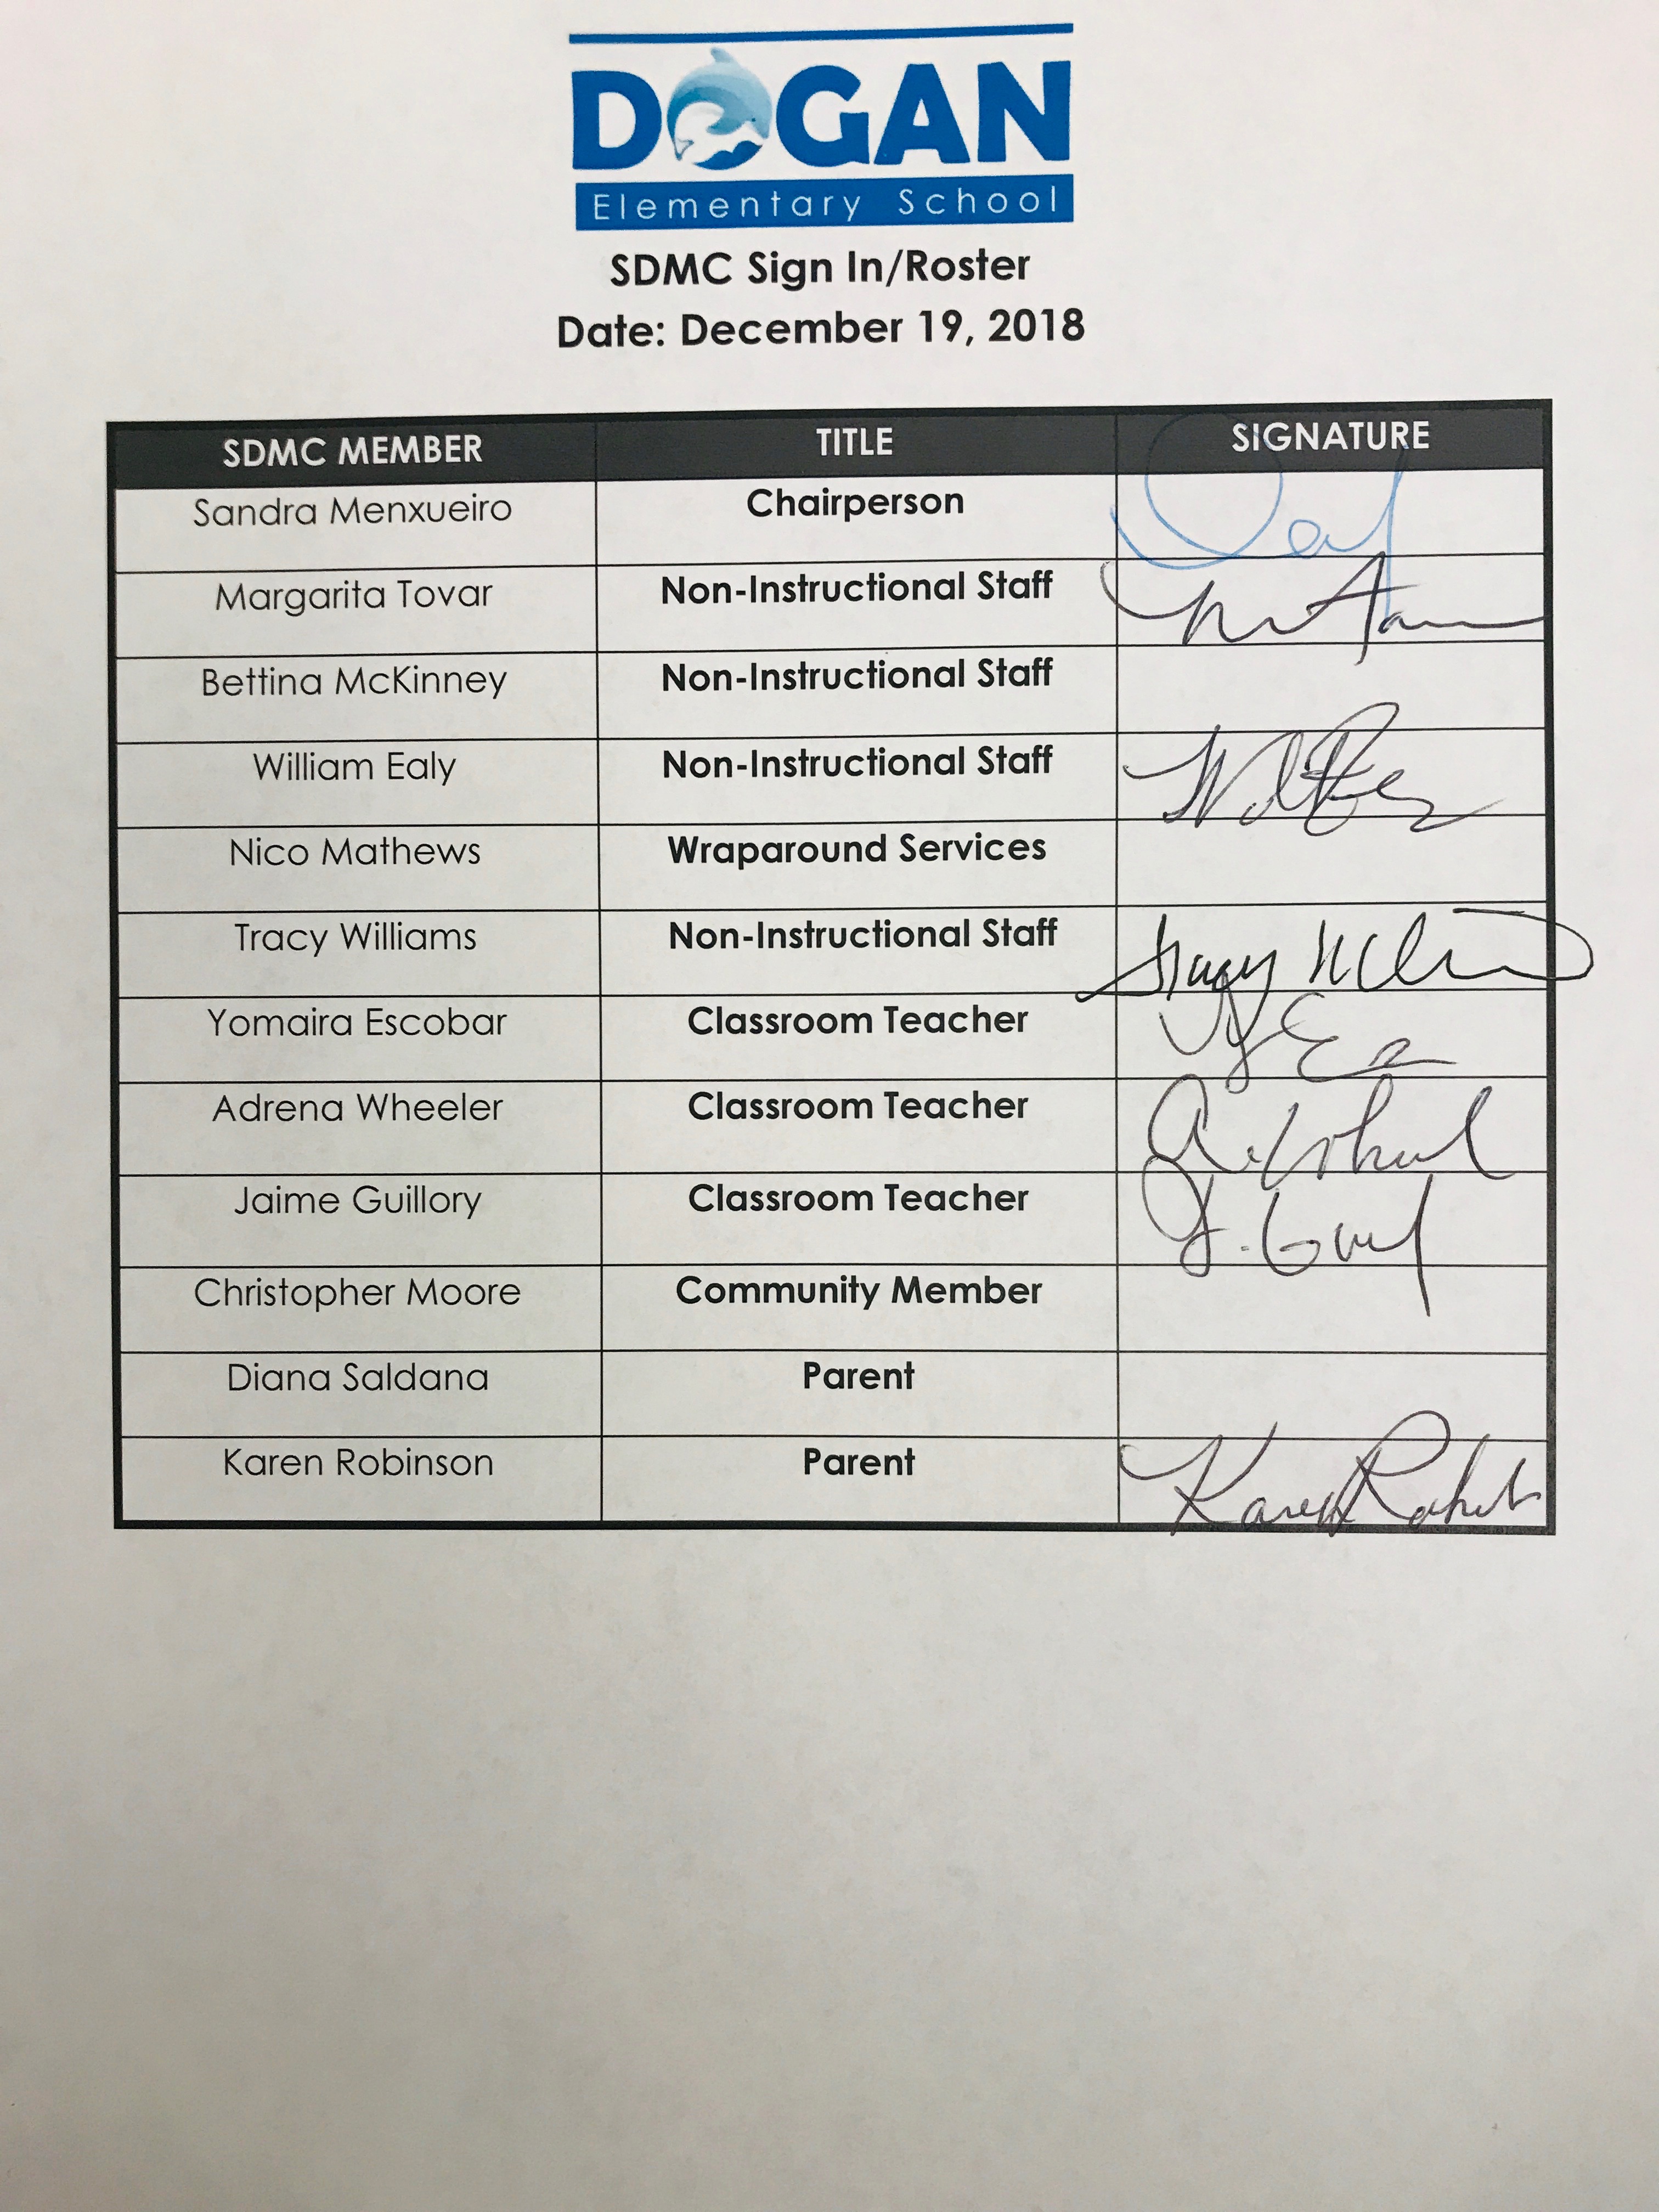 DOGAN
Elementary School
SDMC Sign In/Roster
Date: December 19, 2018
SDMC MEMBER TITLE SIGNATURE
Sandra Menxueiro Chairperson
Margarita Tovar Non-Instructional Staff
Bettina McKinney Non-Instructional Staff
William Ealy Non-Instructional Staff
Nico Mathews Wraparound Services
Tracy Williams Non-Instructional Staff Tracy
Yomaira Escobar Classroom Teacher
Adrena Wheeler Classroom Teacher
Jaime Guillory Classroom Teacher
Christopher Moore Community Member
Diana Saldana Parent
Karen Robinson Parent Karen